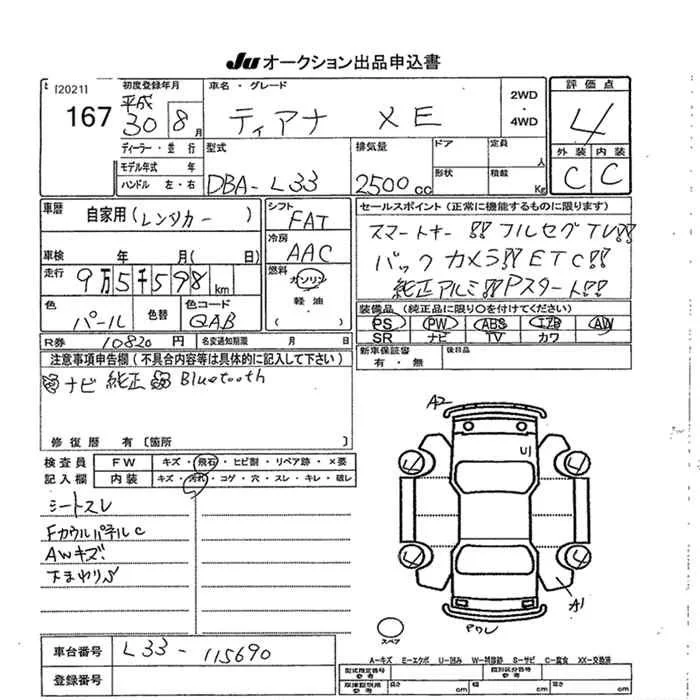 Ju オークション出品申込書
[2021]
167
初度登録年月
平成
30 8月
車名・グレード
ティアナ XE
2WD
・
4WD
評価点
4
外装 内装
C C
ディーラー・並行
モデル年式 年
ハンドル 左・右
型式
DBA-L33
排気量
2500cc
ドア
定員
人
形状
積載
Kg
車歴
自家用(レンタカー)
車検 年 月( 日)
走行
9万5千598km
色
パール
色替
色コード
QAB
シフト
FAT
冷房
AAC
燃料
ガソリン
・
軽油
・
( )
セールスポイント(正常に機能するものに限ります)
スマートキー!! フルセグTV!!
バックカメラ!! ETC!!
純正アルミ!! Pスタート!!
装備品(純正品に限り○を付けてください)
PS PW ABS エアB AW
SR ナビ TV カワ
R券 10820円
名変通知期限 月 日
新車保証書
有・無
後日品
注意事項申告欄(不具合内容等は具体的に記入して下さい)
ナビ 純正 Bluetooth
修復歴 有〔箇所 〕
検査員
記入欄
FW キズ・飛石・ヒビ割・リペア跡・×要
内装 キズ・汚れ・コゲ・穴・スレ・キレ・破レ
シートスレ
FカウルパネルC
AWキズ
下まわりS
A2
U1
4 4
4 4
A1
スペア
Pクレ
車台番号 L33-115690
登録番号
A-キズ E-エクボ U-凹み W-補修跡 S-サビ C-腐食 XX-交換済
型式指定番号
参考
類別区分番号
参考
車庫証明用
参考
長さ cm 幅 cm 高さ cm